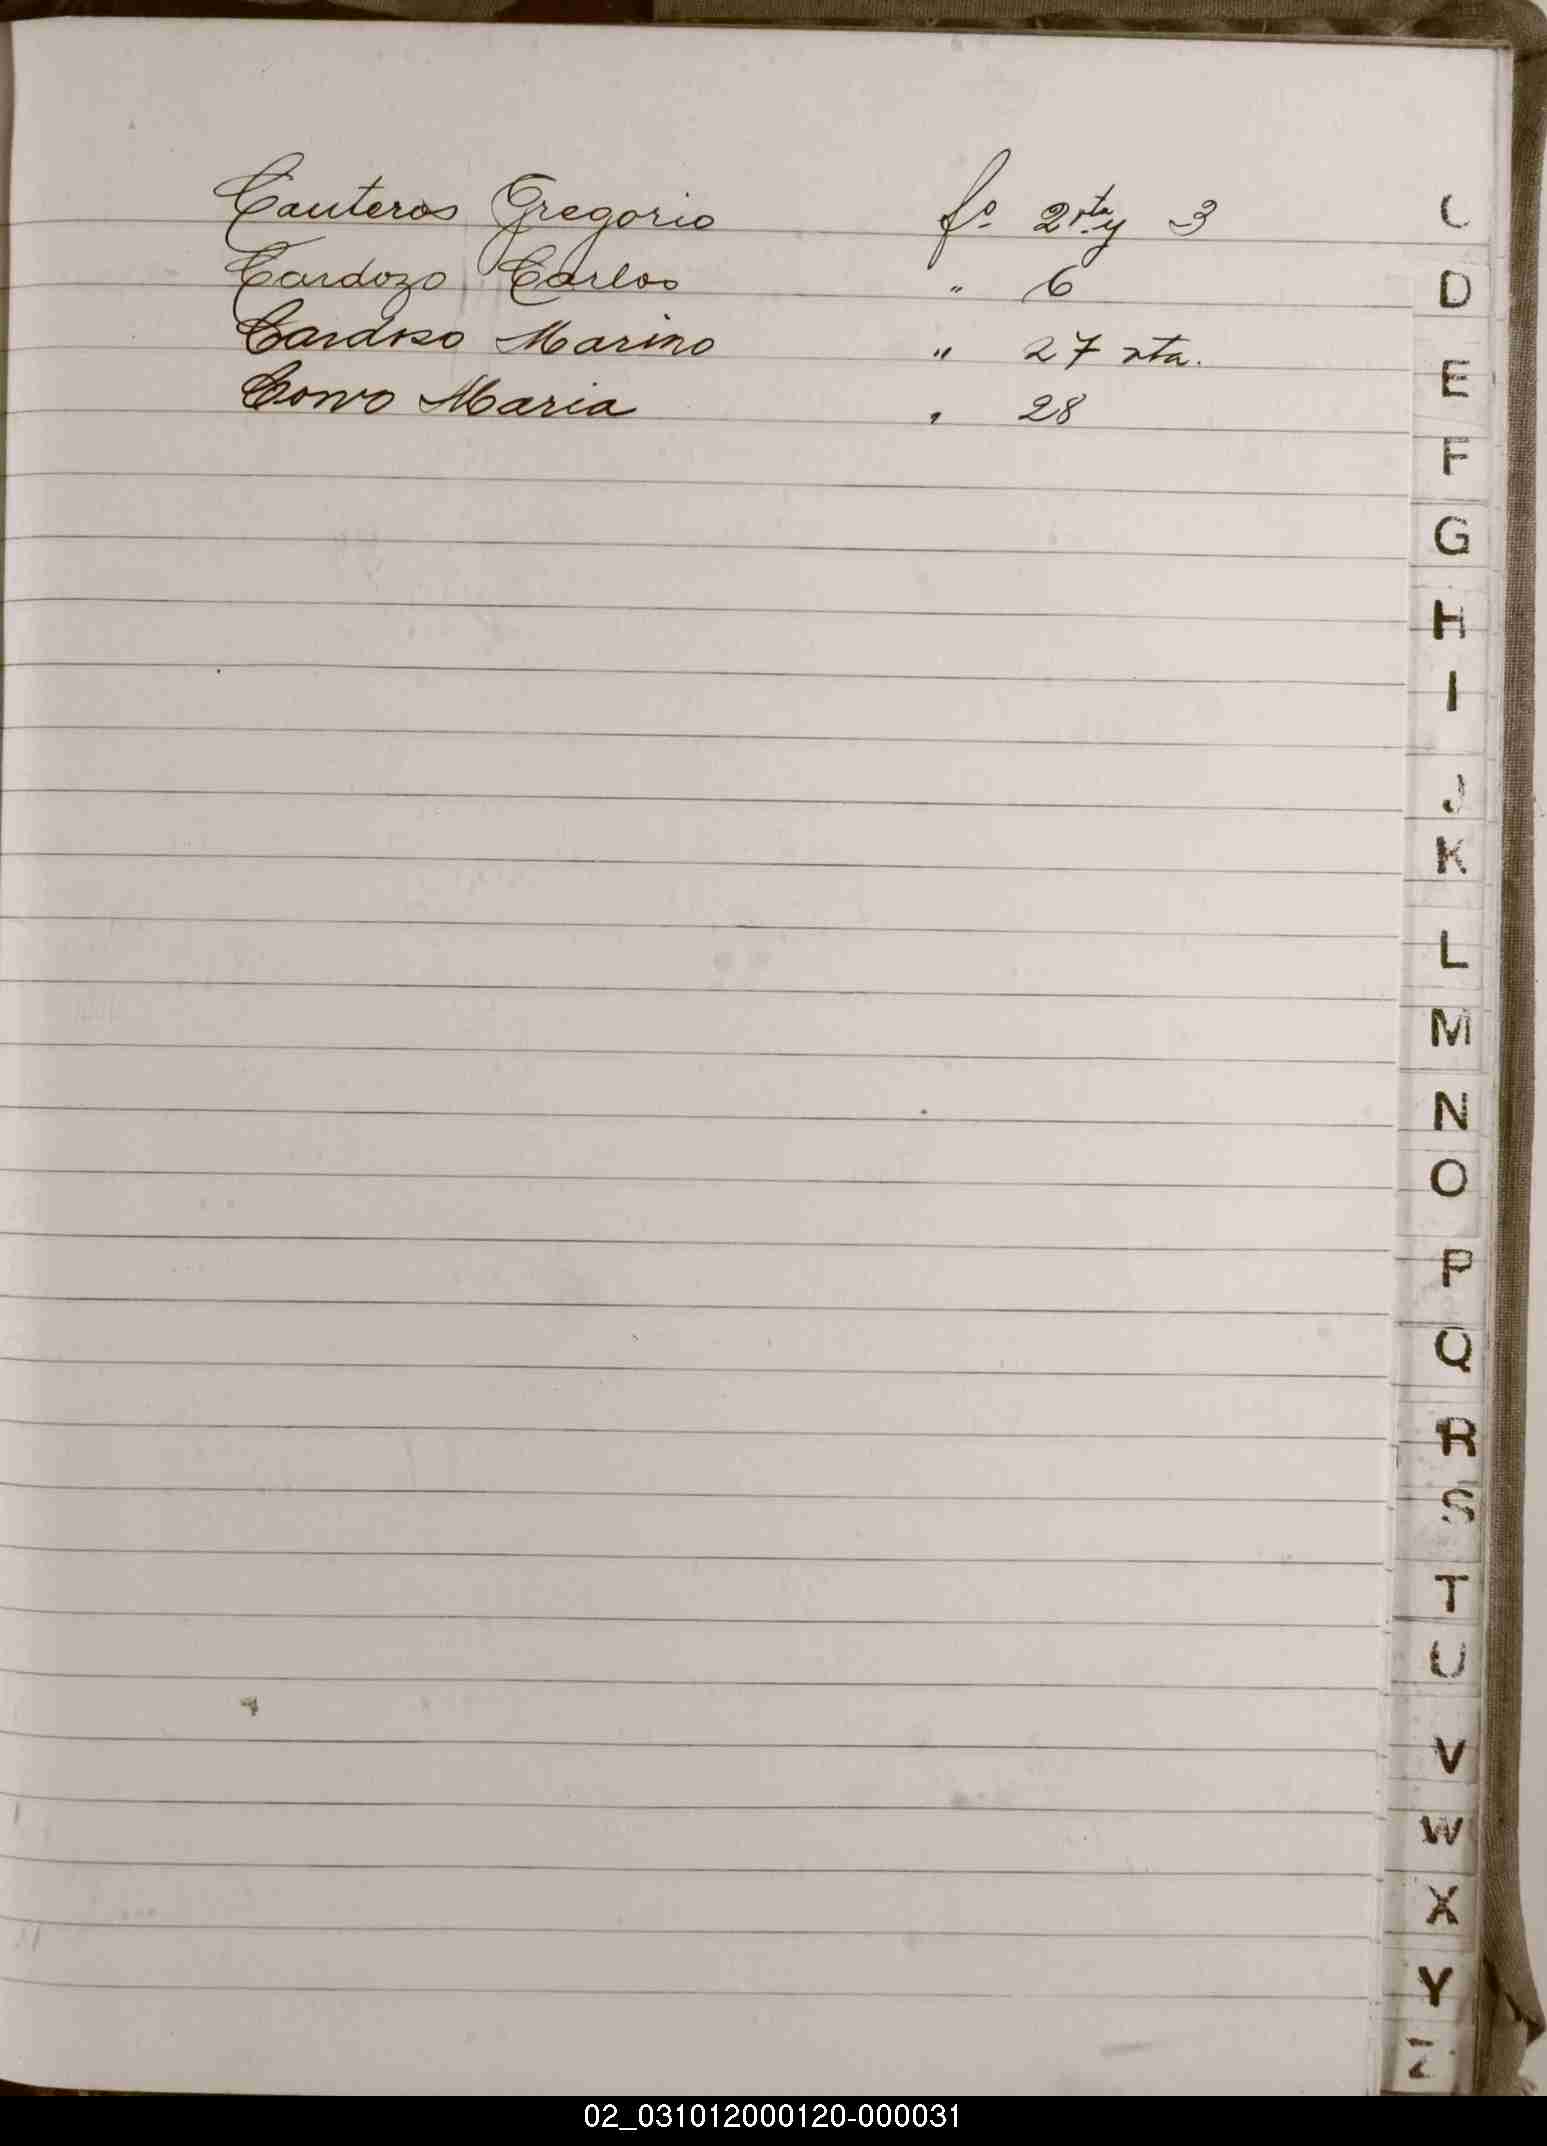 Canteros Gregorio fº 2 vta y 3
Cardozo Carlos " 6
Cardoso Marino " 27 vta.
Corvo Maria " 28
C
D
E
F
G
H
I
J
K
L
M
N
O
P
Q
R
S
T
U
V
W
X
Y
Z
02_031012000120-000031